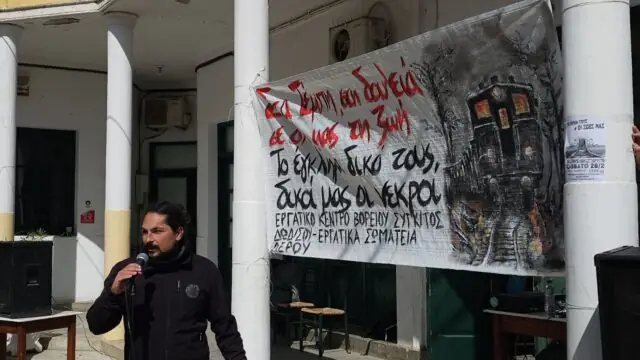 Στα Τέμπη, στη δουλειά
σε όλη μας τη ζωή
Το έγκλημα δικό τους,
δικά μας οι νεκροί
ΕΡΓΑΤΙΚΟ ΚΕΝΤΡΟ ΒΟΡΕΙΟΥ ΣΥΓΚ/ΤΟΣ
ΔΩΔ/ΣΟΥ - ΕΡΓΑΤΙΚΑ ΣΩΜΑΤΕΙΑ
ΛΕΡΟΥ
ΟΙ ΖΩΕΣ ΜΑΣ